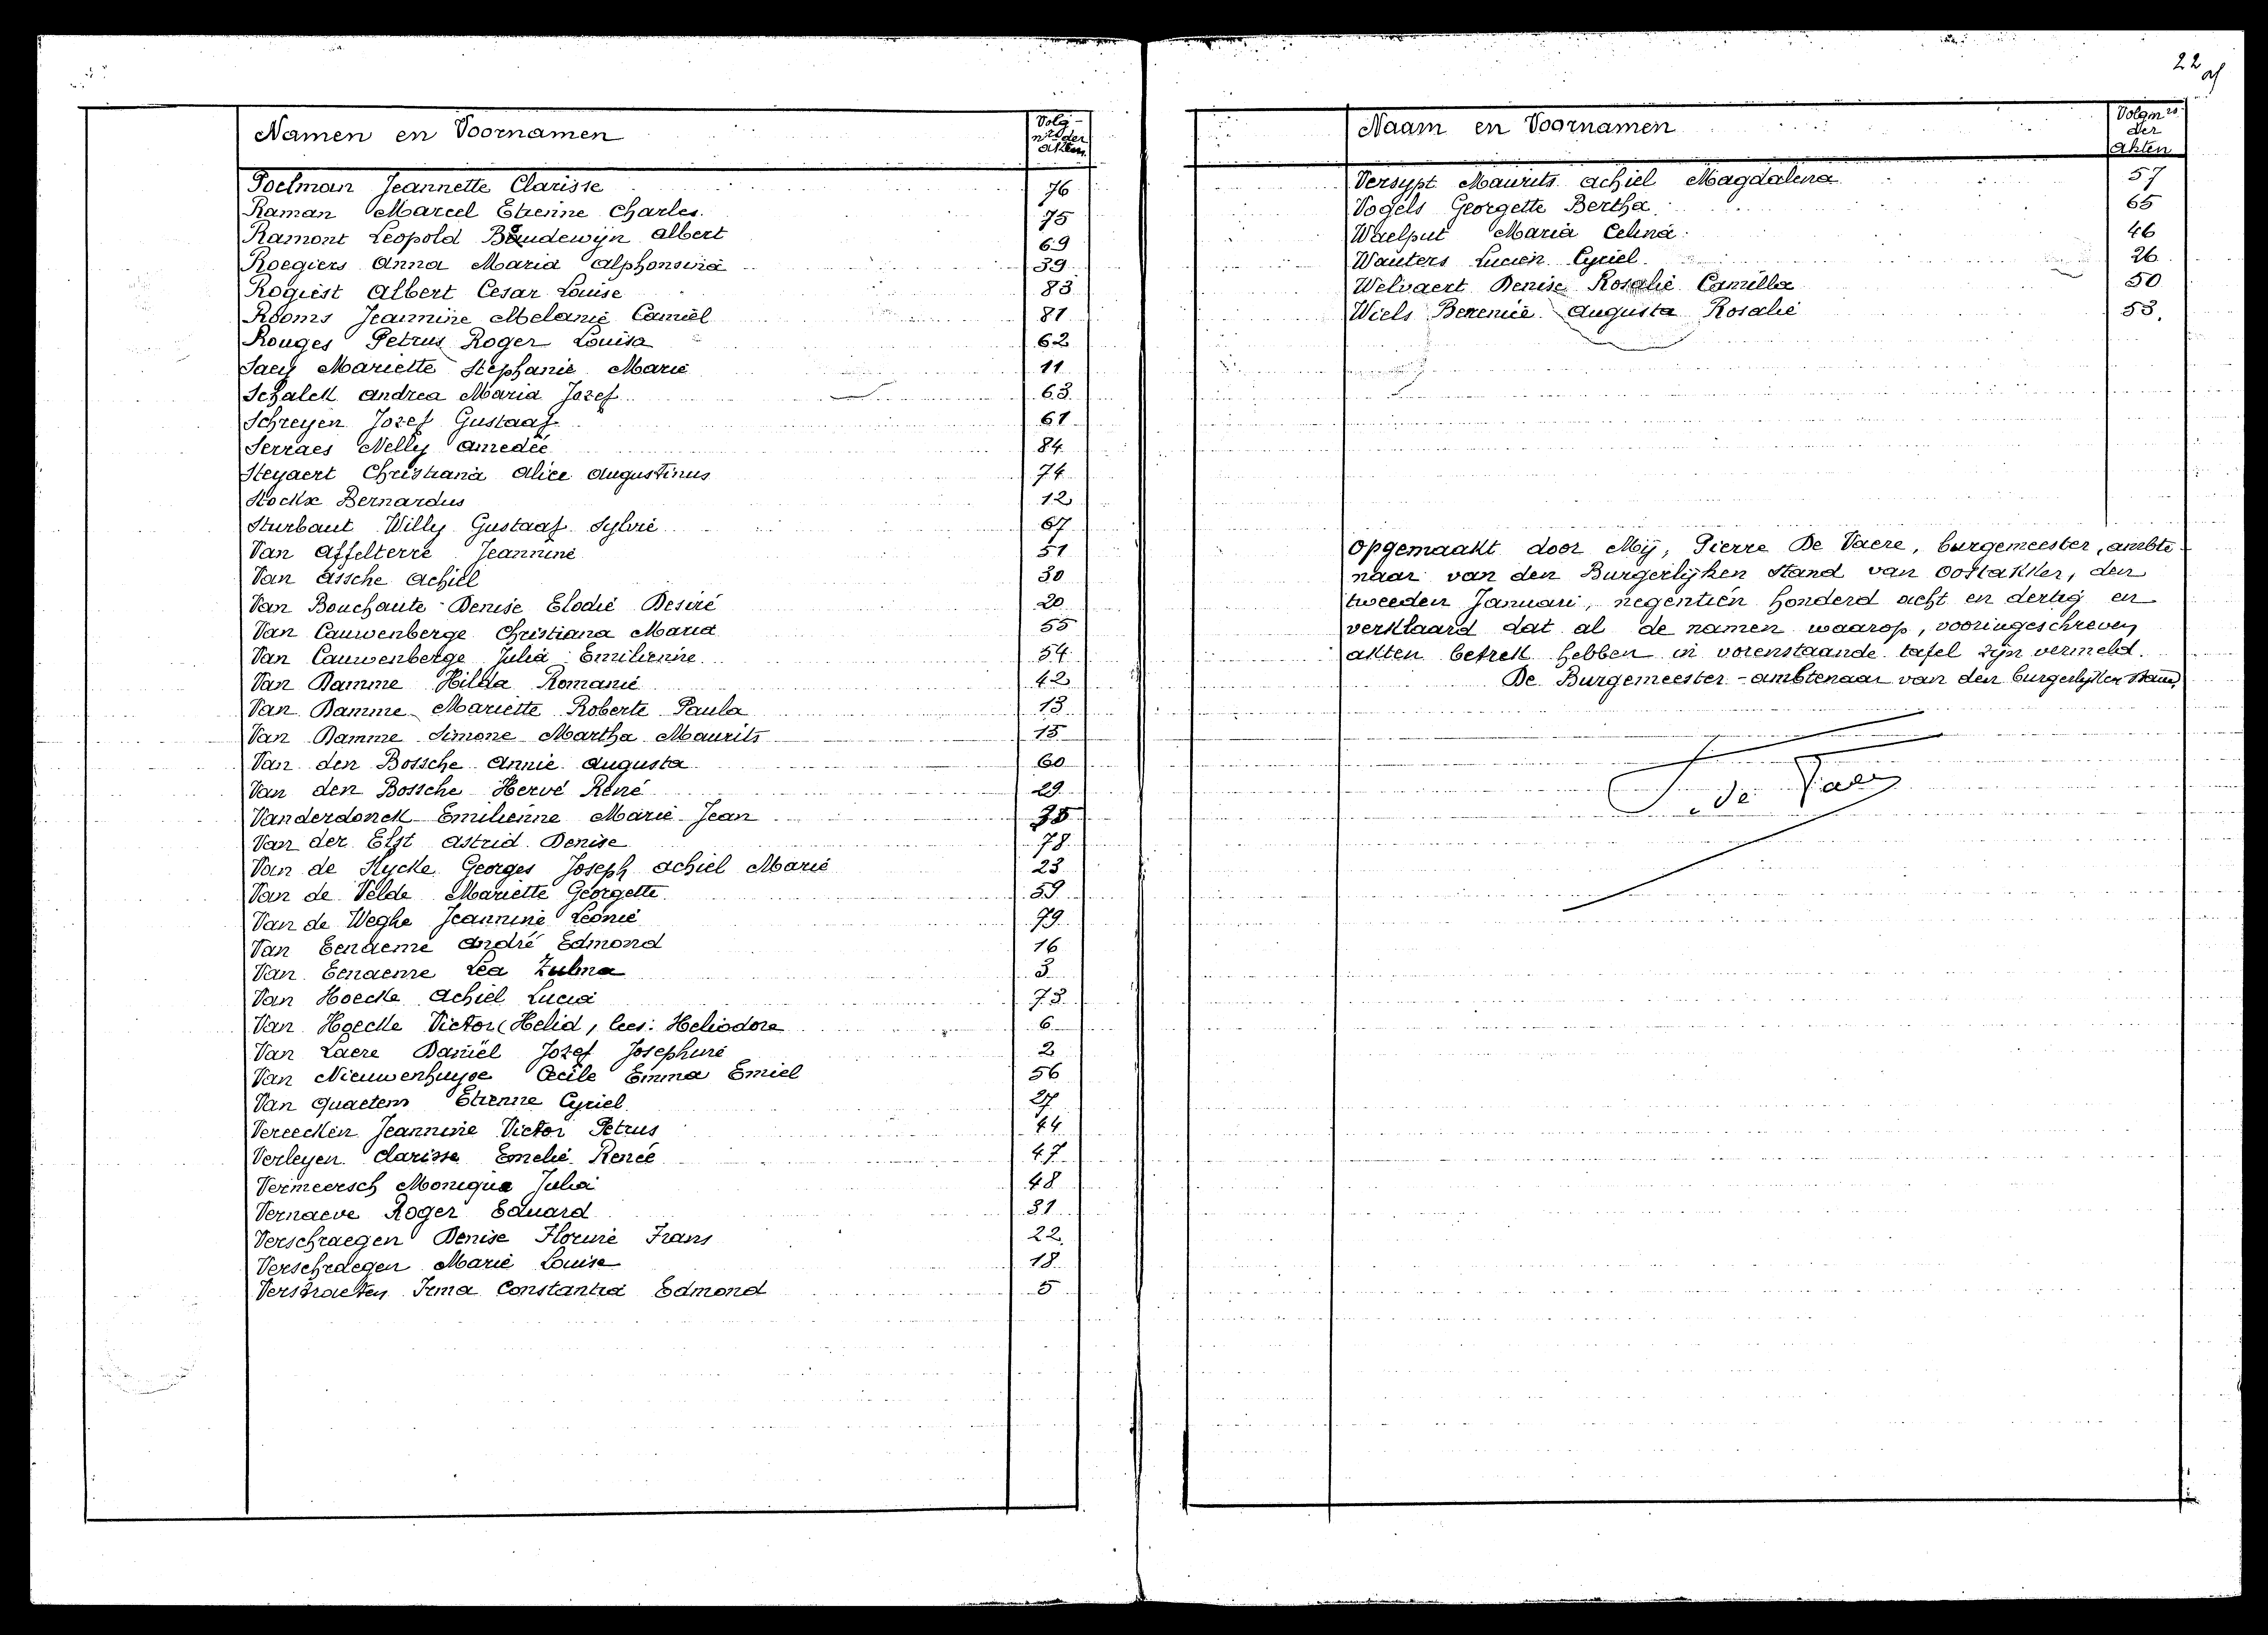 22
Namen en Voornamen
Volg-
nrs der
akten.
Poelman Jeannette Clarisse 76
Raman Marcel Etienne Charles. 75
Ramont Leopold Boudewijn Albert 69
Roegiers Anna Maria Alphonsina 39
Rogiest Albert Cesar Louise 83
Rooms Jeannine Melanie Camiel 81
Rouges Petrus Roger Louisa 62
Saey Mariette Stephanie Marie 11
Schalck Andrea Maria Jozef 63
Schreyen Jozef Gustaaf 61
Serraes Nelly Amedée 84
Steyaert Christiana Alice Augustinus 74
Stockx Bernardus 12
Sturbaut Willy Gustaaf Sylvie 67
Van Affelterre Jeannine 51
Van Assche Achiel 30
Van Bouchaute Denise Elodie Desiré 20
Van Cauwenberge Christiana Maria 55
Van Cauwenberge Julia Emilienne 54
Van Damme Hilda Romanie 42
Van Damme Mariette Roberte Paula 13
Van Damme Simone Martha Maurits 15
Van den Bossche Annie Augusta 60
Van den Bossche Hervé René 29
Vanderdonck Emilienne Marie Jean
Van der Elst Astrid Denise 78
Van de Rycke Georges Joseph Achiel Marie 23
Van de Velde Mariette Georgette 59
Van de Weghe Jeannine Leonie 79
Van Eenaeme André Edmond 16
Van Eenaeme Lea Zulma 3
Van Hoecke Achiel Lucia 73
Van Hoecke Victor (Helid, lees: Heliodore 6
Van Laere Daniël Jozef Josephine 2
Van Nieuwenhuyse Cecile Emma Emiel 56
Van Quaetem Etienne Cyriel 27
Vereecken Jeannine Victor Petrus 44
Verleyen Clarisse Emelie Renée 47
Vermeersch Monique Julia 48
Vernaeve Roger Eduard 31
Verschraegen Denise Florine Frans 22
Verschraegen Marie Louise 18
Verstraeten Irma Constantia Edmond 5
Naam en Voornamen
Volgnrs
der
akten
Versypt Maurits Achiel Magdalena 57
Vogels Georgette Bertha 65
Waelput Maria Celina 46
Wauters Lucien Cyriel 26
Welvaert Denise Rosalie Camilla 50
Wiels Berenice Augusta Rosalie 53.
Opgemaakt door Mij, Pierre De Vaere, burgemeester, ambte-
naar van den Burgerlijken Stand van Oostakker, den
tweeden Januari, negentien honderd acht en dertig en
verklaard dat al de namen waarop, vooringeschreven
akten betrek hebben in vorenstaande tafel zijn vermeld.
De Burgemeester - ambtenaar van den burgerlijken stand,
P. de Vaere